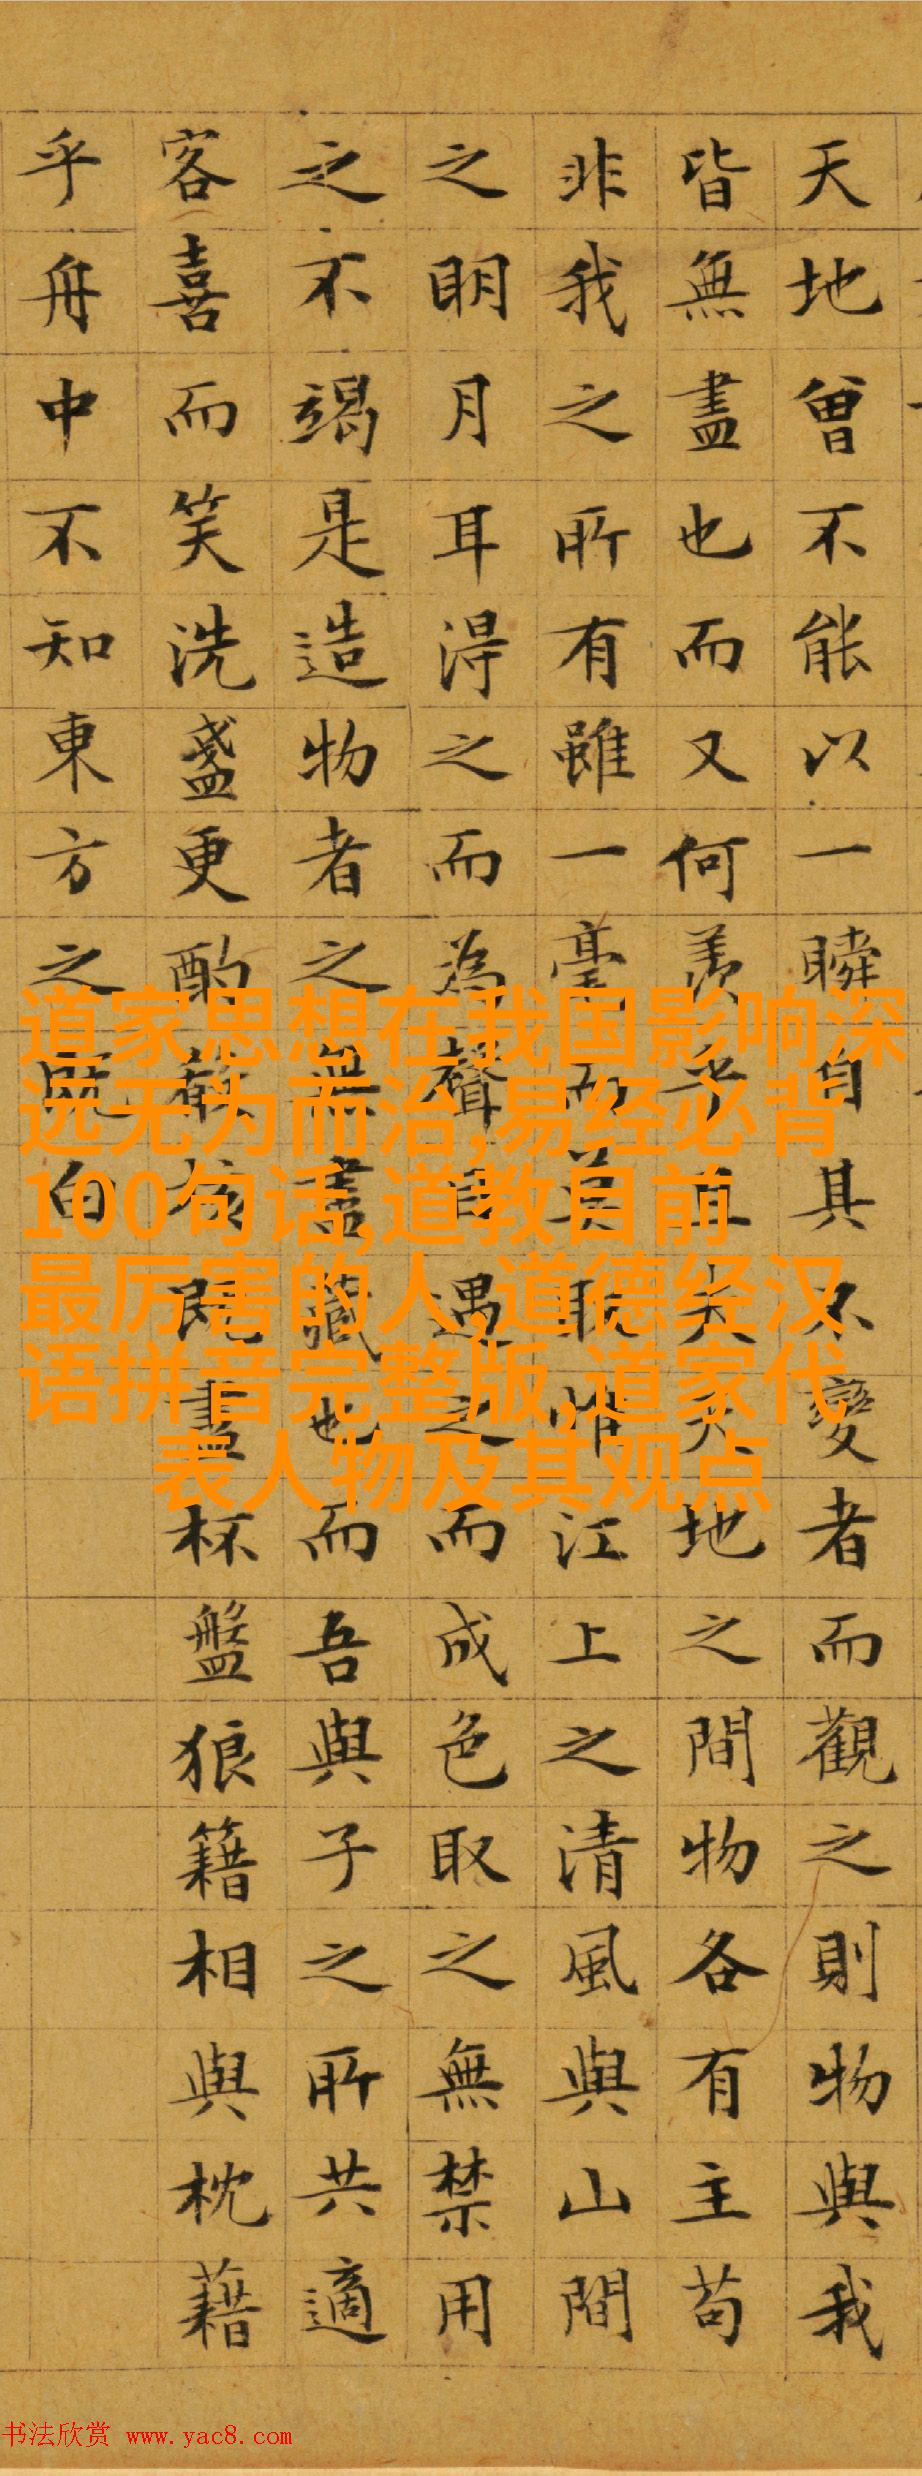 天地曾不能以一瞬自其不變者而觀之則物與我
皆無盡也而又何羨乎且夫天地之間物各有主苟
非我之所有雖一毫而莫取惟江上之清風與山間
之明月耳淂之而為聲目遇之而成色取之無禁用
之不竭是造物者之無盡藏也而吾與子之所共適
客喜而笑洗盞更酌肴核既盡杯盤狼籍相與枕藉
乎舟中不知東方之既白
道家思想在我国影响深
远无为而治,易经必背
100句话,道教目前
最厉害的人,道德经汉
语拼音完整版,道家代
表人物及其观点
书法欣赏 www.yac8.com